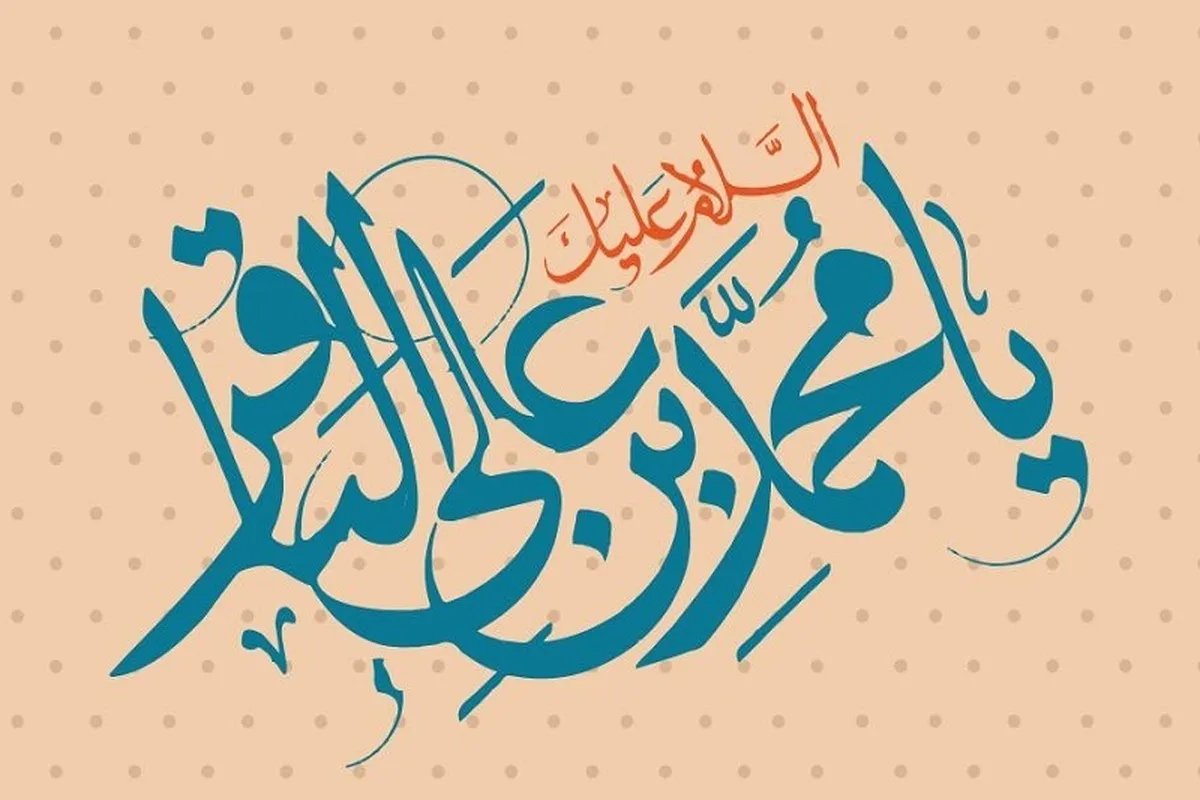 السَّلامُ عَلیك
یا محمّدِ ابنِ علی الباقر